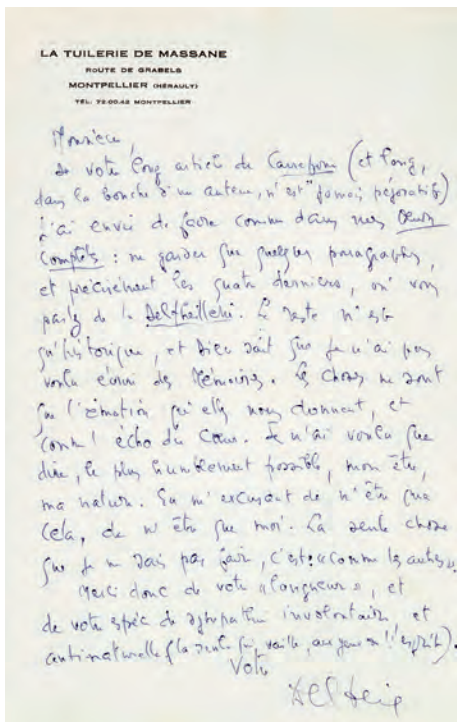 LA TUILERIE DE MASSANE
ROUTE DE GRABELS
MONTPELLIER (HÉRAULT)
TÉL: 72.00.42 MONTPELLIER
Monsieur,
de votre long article de Carrefour (et long,
dans la bouche d'un auteur, n'est jamais péjoratif)
j'ai envie de faire comme dans mes Œuvres
Complètes : ne garder que quelques paragraphes,
et précisément les quatre derniers, où vous
parlez de la Delteillerie. Le reste n'est
qu'historique, et Dieu sait que je n'ai pas
voulu écrire des Mémoires. Les choses ne sont
que l'émotion qu'elles nous donnent, et
comme l'écho du Cœur. Je n'ai voulu que
dire, le plus humblement possible, mon être,
ma nature. En m'excusant de n'être que
cela, de n'être que moi. La seule chose
que je ne sais pas faire, c'est: « comme les autres ».
Merci donc de votre « longueur », et
de votre espèce de sympathie involontaire et
antinaturelle (la seule qui vaille, aux yeux de l'esprit).
Votre
Delteil